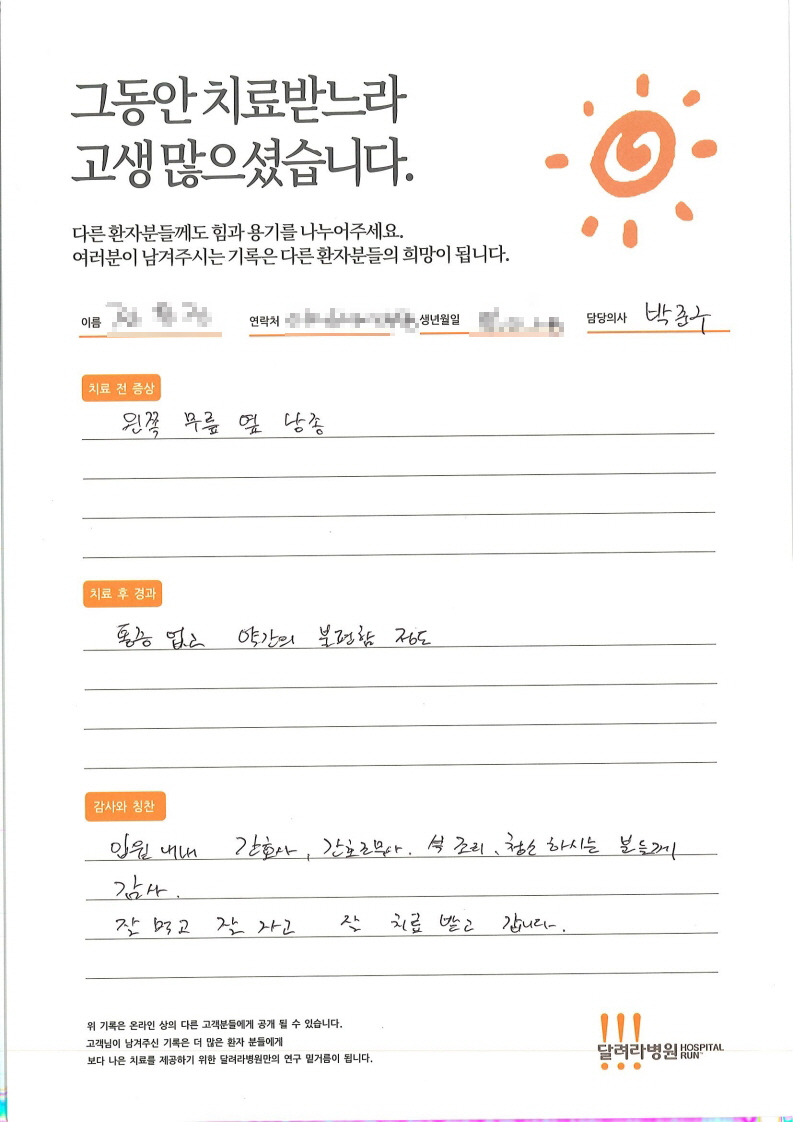 그동안 치료받느라
고생 많으셨습니다.
다른 환자분들께도 힘과 용기를 나누어주세요.
여러분이 남겨주시는 기록은 다른 환자분들의 희망이 됩니다.
이름 연락처 생년월일 담당의사 박준구
치료 전 증상
왼쪽 무릎 옆 낭종
치료 후 경과
통증 없고 약간의 불편함 정도
감사와 칭찬
입원 내내 간호사, 간호조무사. 조리, 청소 하시는 분들께
감사.
잘 먹고 잘 자고 잘 치료 받고 갑니다.
위 기록은 온라인 상의 다른 고객분들에게 공개 될 수 있습니다.
고객님이 남겨주신 기록은 더 많은 환자 분들에게
보다 나은 치료를 제공하기 위한 달려라병원만의 연구 밑거름이 됩니다.
!!!
달려라병원 HOSPITAL RUN™